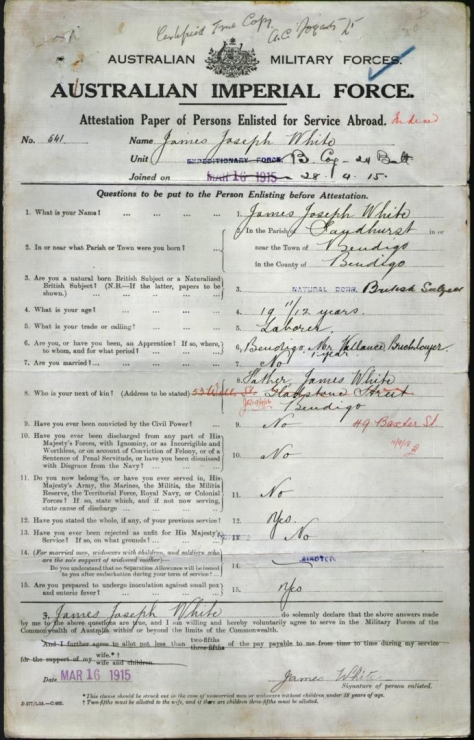 Certified True Copy
AUSTRALIAN MILITARY FORCES.
AUSTRALIAN IMPERIAL FORCE.
Attestation Paper of Persons Enlisted for Service Abroad.
No. 541 Name James Joseph White
Unit EXPEDITIONARY FORCE B Coy - 24 Batt
Joined on MAR 16 1915 - 28. 4. 15.
Questions to be put to the Person Enlisting before Attestation.
1. What is your Name? ... ... ... ... 1. James Joseph White
In the Parish of Sandhurst in or
2. In or near what Parish or Town were you born? ... 2. near the Town of Bendigo
in the County of Bendigo
3. Are you a natural born British Subject or a Naturalized
British Subject? (N.B.—If the latter, papers to be
shown.) ... ... ... 3. NATURAL BORN British Subject
4. What is your age? ... ... ... 4. 19 11/12 years.
5. What is your trade or calling? ... ... 5. Laborer
6. Are you, or have you been, an Apprentice? If so, where,
to whom, and for what period? ... ... 6. Bendigo, Mr. Vallance, Bricklayer, 1 year
7. Are you married? ... ... ... 7. No
8. Father, James White
8. Who is your next of kin? (Address to be stated) 53 Gladstone Street
Bendigo
49 Baxter St
9. Have you ever been convicted by the Civil Power? ... 9. No
10. Have you ever been discharged from any part of His
Majesty's Forces, with Ignominy, or as Incorrigible and
Worthless, or on account of Conviction of Felony, or of a
Sentence of Penal Servitude, or have you been dismissed
with Disgrace from the Navy? ... ... 10. No
11. Do you now belong to, or have you ever served in, His
Majesty's Army, the Marines, the Militia, the Militia
Reserve, the Territorial Force, Royal Navy, or Colonial
Forces? If so, state which, and if not now serving,
state cause of discharge ... ... 11. No
12. Have you stated the whole, if any, of your previous service? 12. Yes.
13. Have you ever been rejected as unfit for His Majesty's
Service? If so, on what grounds? ... 13. No
14. (For married men, widowers with children, and soldiers who
are the sole support of widowed mother)—
Do you understand that no Separation Allowance will be issued
to you after embarkation during your term of service? 14.
15. Are you prepared to undergo inoculation against small pox
and enteric fever? ... ... ... 15. Yes
I, James Joseph White do solemnly declare that the above answers made
by me to the above questions are true, and I am willing and hereby voluntarily agree to serve in the Military Forces of the
Commonwealth of Australia within or beyond the limits of the Commonwealth.
And I further agree to allot not less than two-fifths three-fifths of the pay payable to me from time to time during my service
for the support of my wife.*†
wife and children.
Date MAR 16 1915 James White
Signature of person enlisted.
*This clause should be struck out in the case of unmarried men or widowers without children under 18 years of age.
† Two-fifths must be allotted to the wife, and if there are children three-fifths must be allotted.